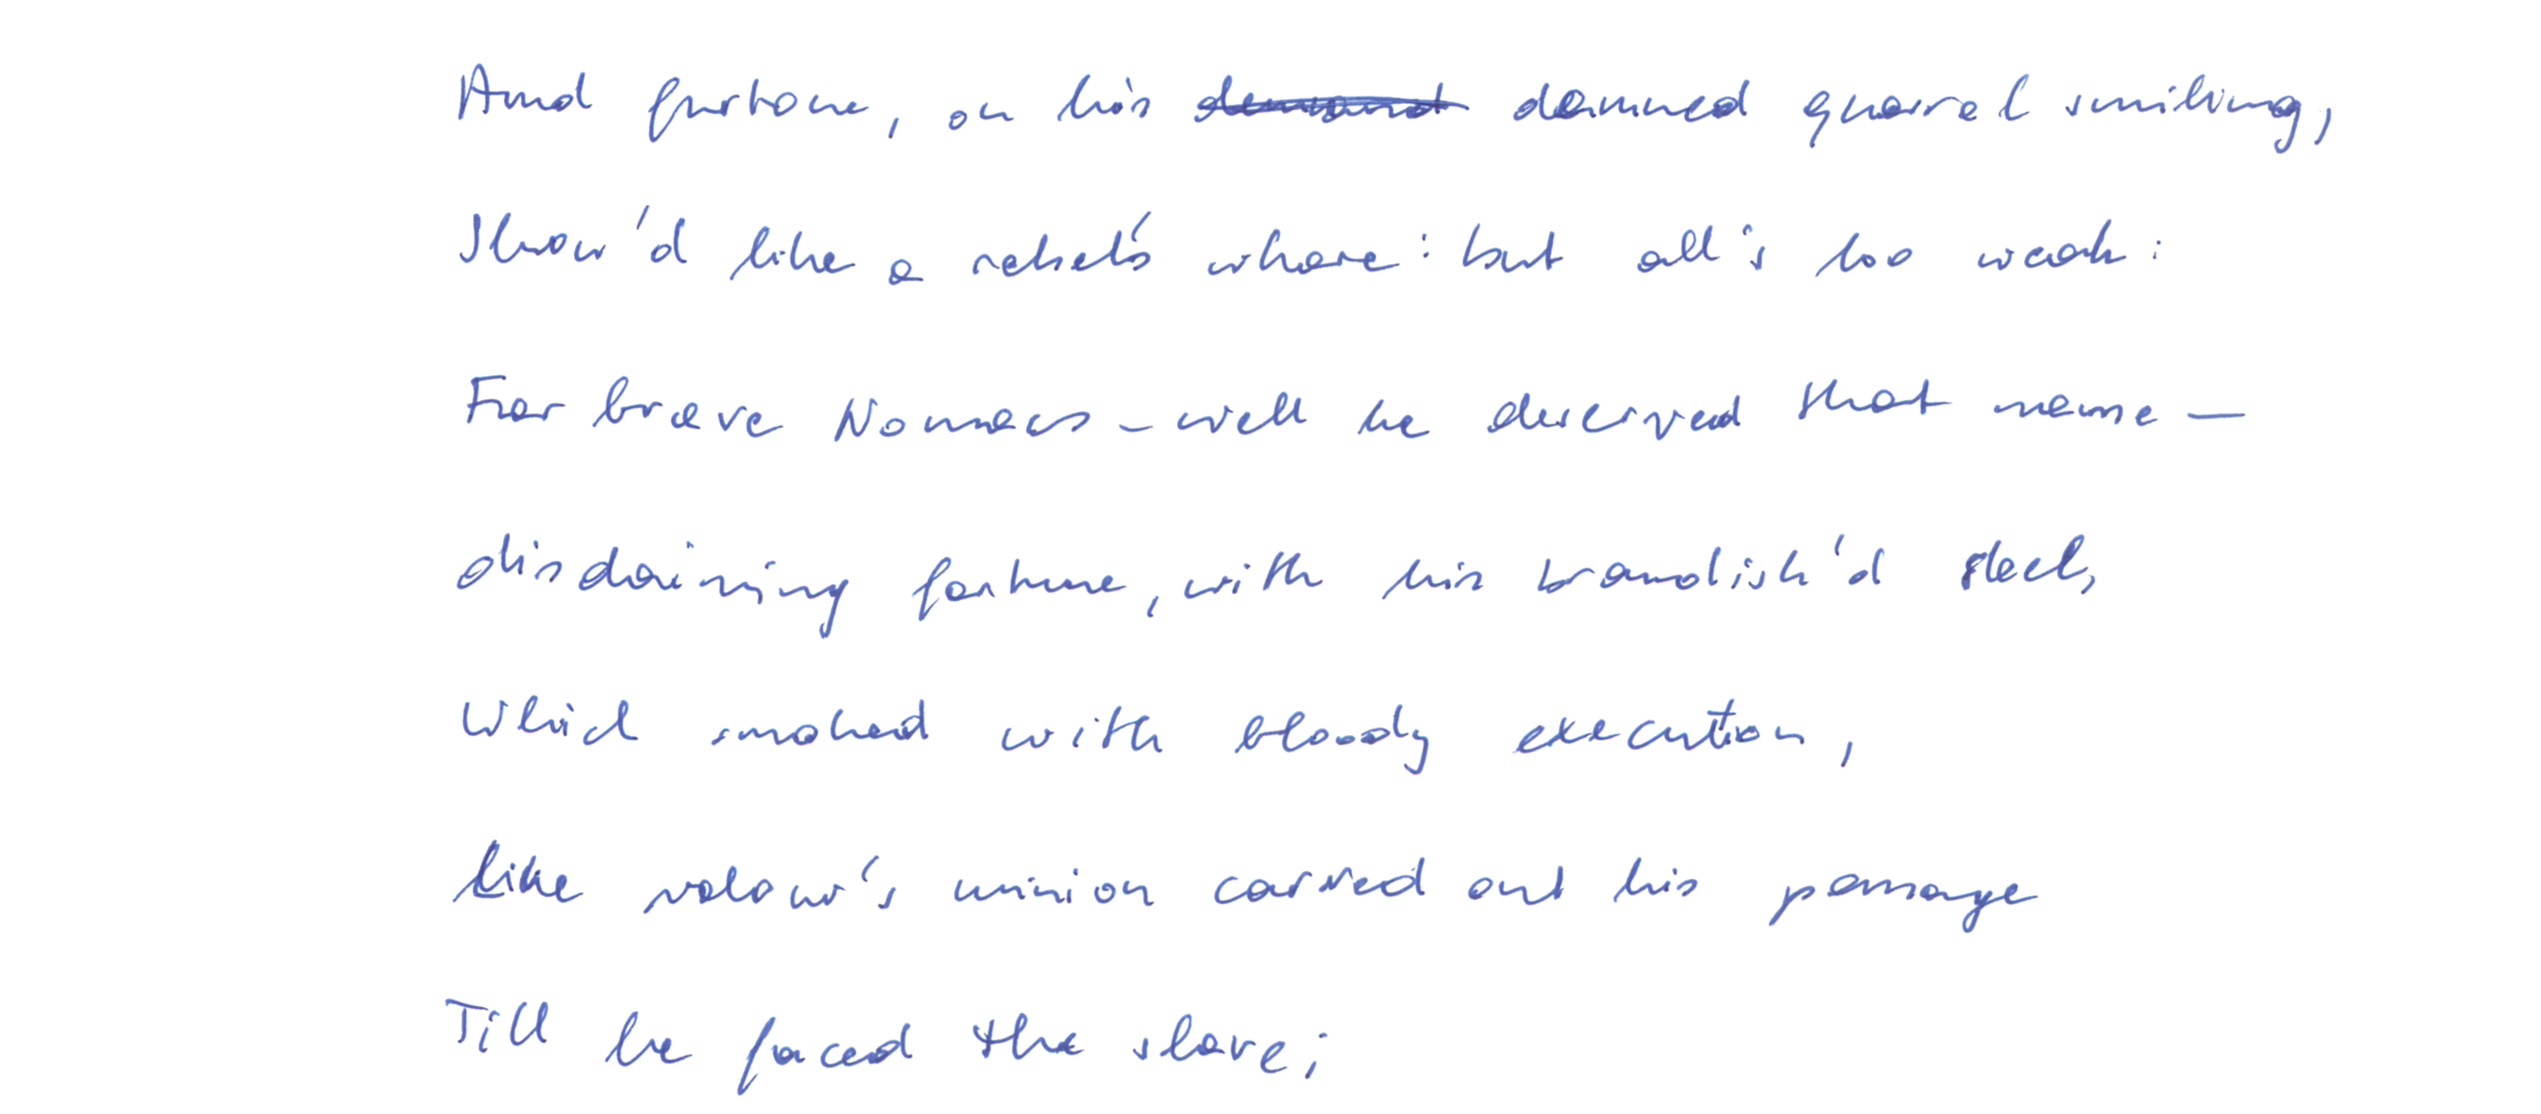 And furtone, on his damned quarrel smiling,
Show'd like a rebel's whore: but all's too weak:
For brave Nomacs - well he deserved that name —
disdaining fortune, with his brandish'd steel,
Which smoked with bloody execution,
like valour's minion carved out his passage
Till he faced the slave;